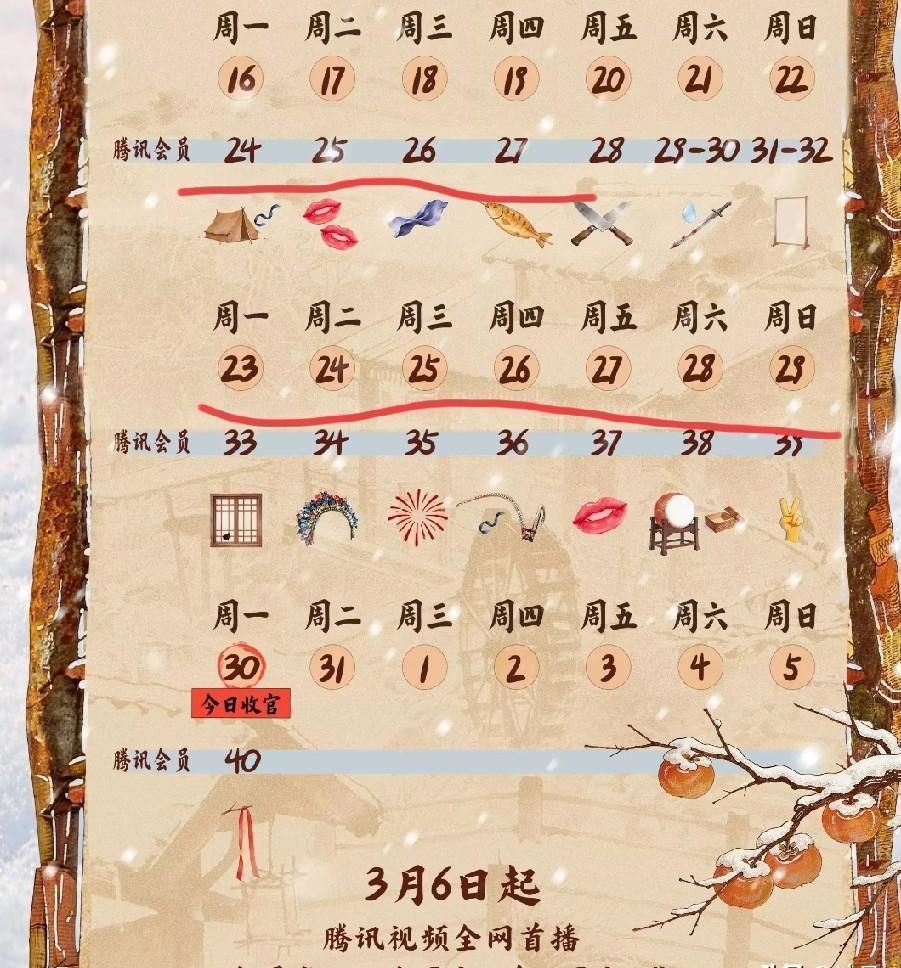 周一 周二 周三 周四 周五 周六 周日
16 17 18 19 20 21 22
腾讯会员 24 25 26 27 28 29-30 31-32
周一 周二 周三 周四 周五 周六 周日
23 24 25 26 27 28 29
腾讯会员 33 34 35 36 37 38 39
周一 周二 周三 周四 周五 周六 周日
30 31 1 2 3 4 5
今日收官
腾讯会员 40
3月6日起
腾讯视频全网首播